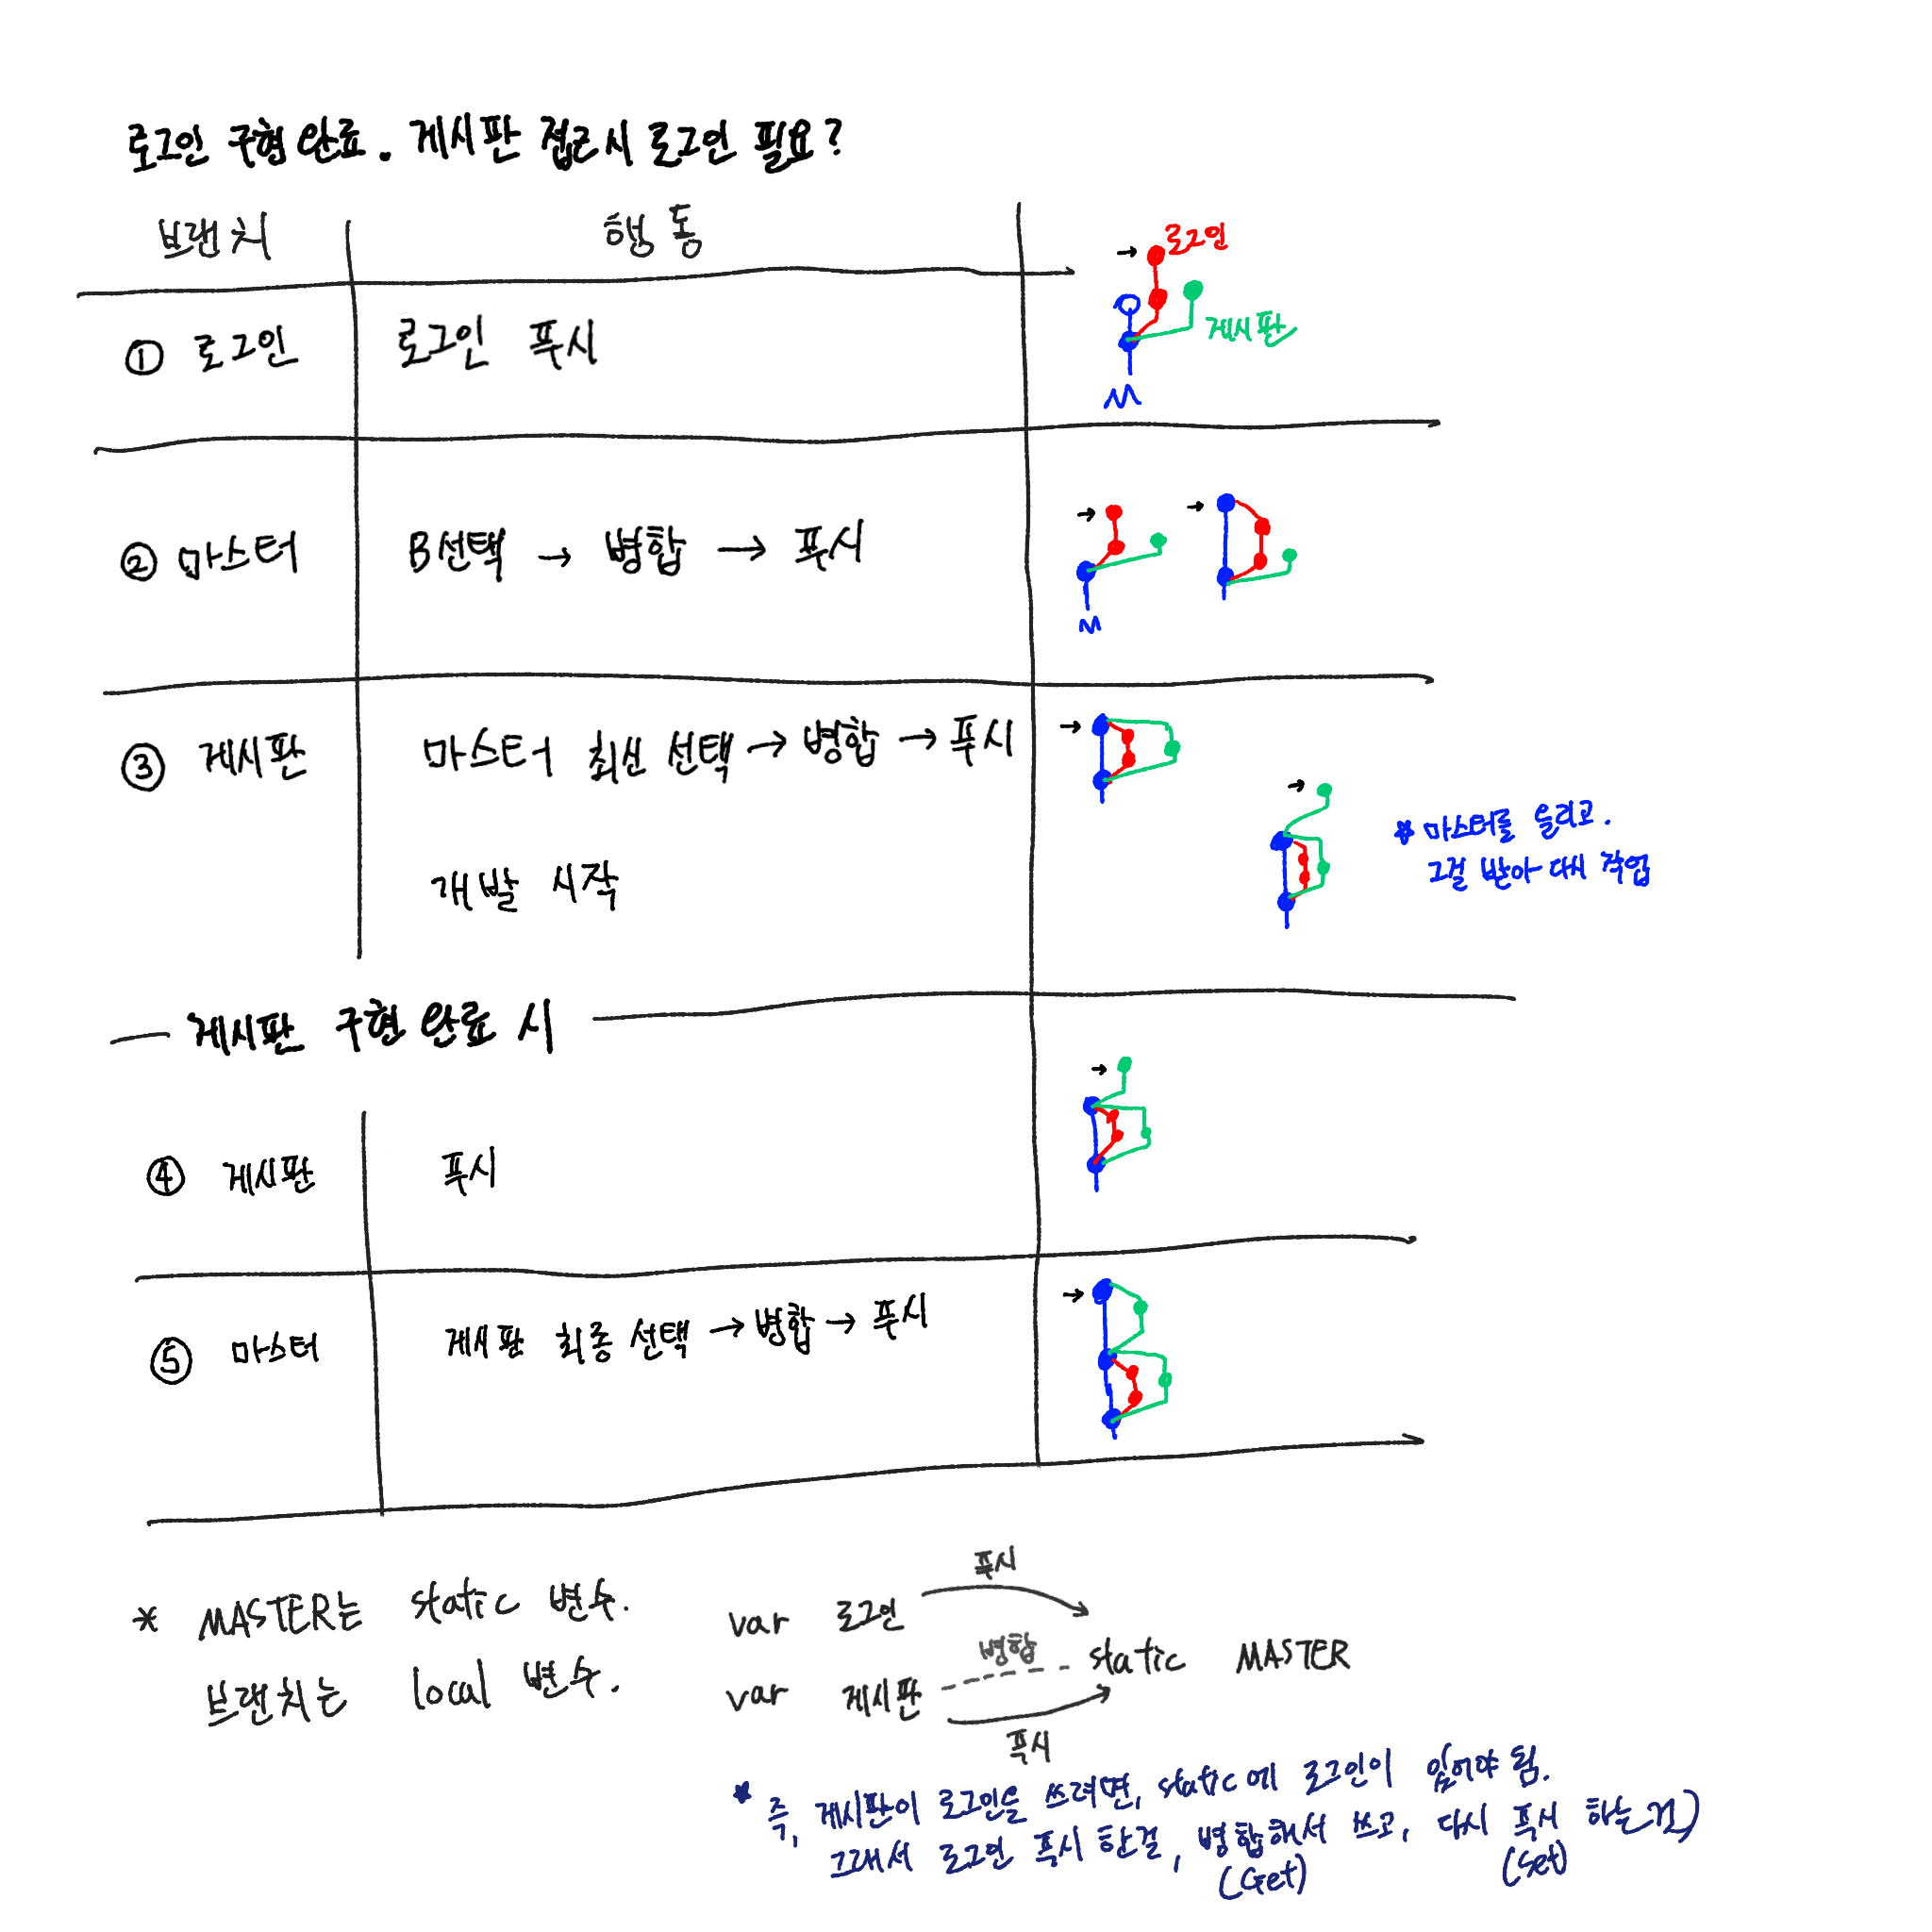 로그인 구현 완료. 게시판 접근시 로그인 필요?
브랜치 행동
→ 로그인
게시판
M
① 로그인 로그인 푸시
② 마스터 B선택 → 병합 → 푸시
→ →
M
③ 게시판 마스터 최신 선택 → 병합 → 푸시
→
개발 시작
→
* 마스터를 올리고.
그걸 받아 다시 작업
게시판 구현 완료 시
④ 게시판 푸시
→
⑤ 마스터 게시판 최종 선택 → 병합 → 푸시
→
* MASTER는 static 변수.
브랜치는 local 변수.
푸시
var 로그인
병합
static MASTER
var 게시판
푸시
* 즉, 게시판이 로그인을 쓰려면, static에 로그인이 있어야 됨.
그래서 로그인 푸시 한걸, 병합해서 쓰고, 다시 푸시 하는것)
(Get) (Set)